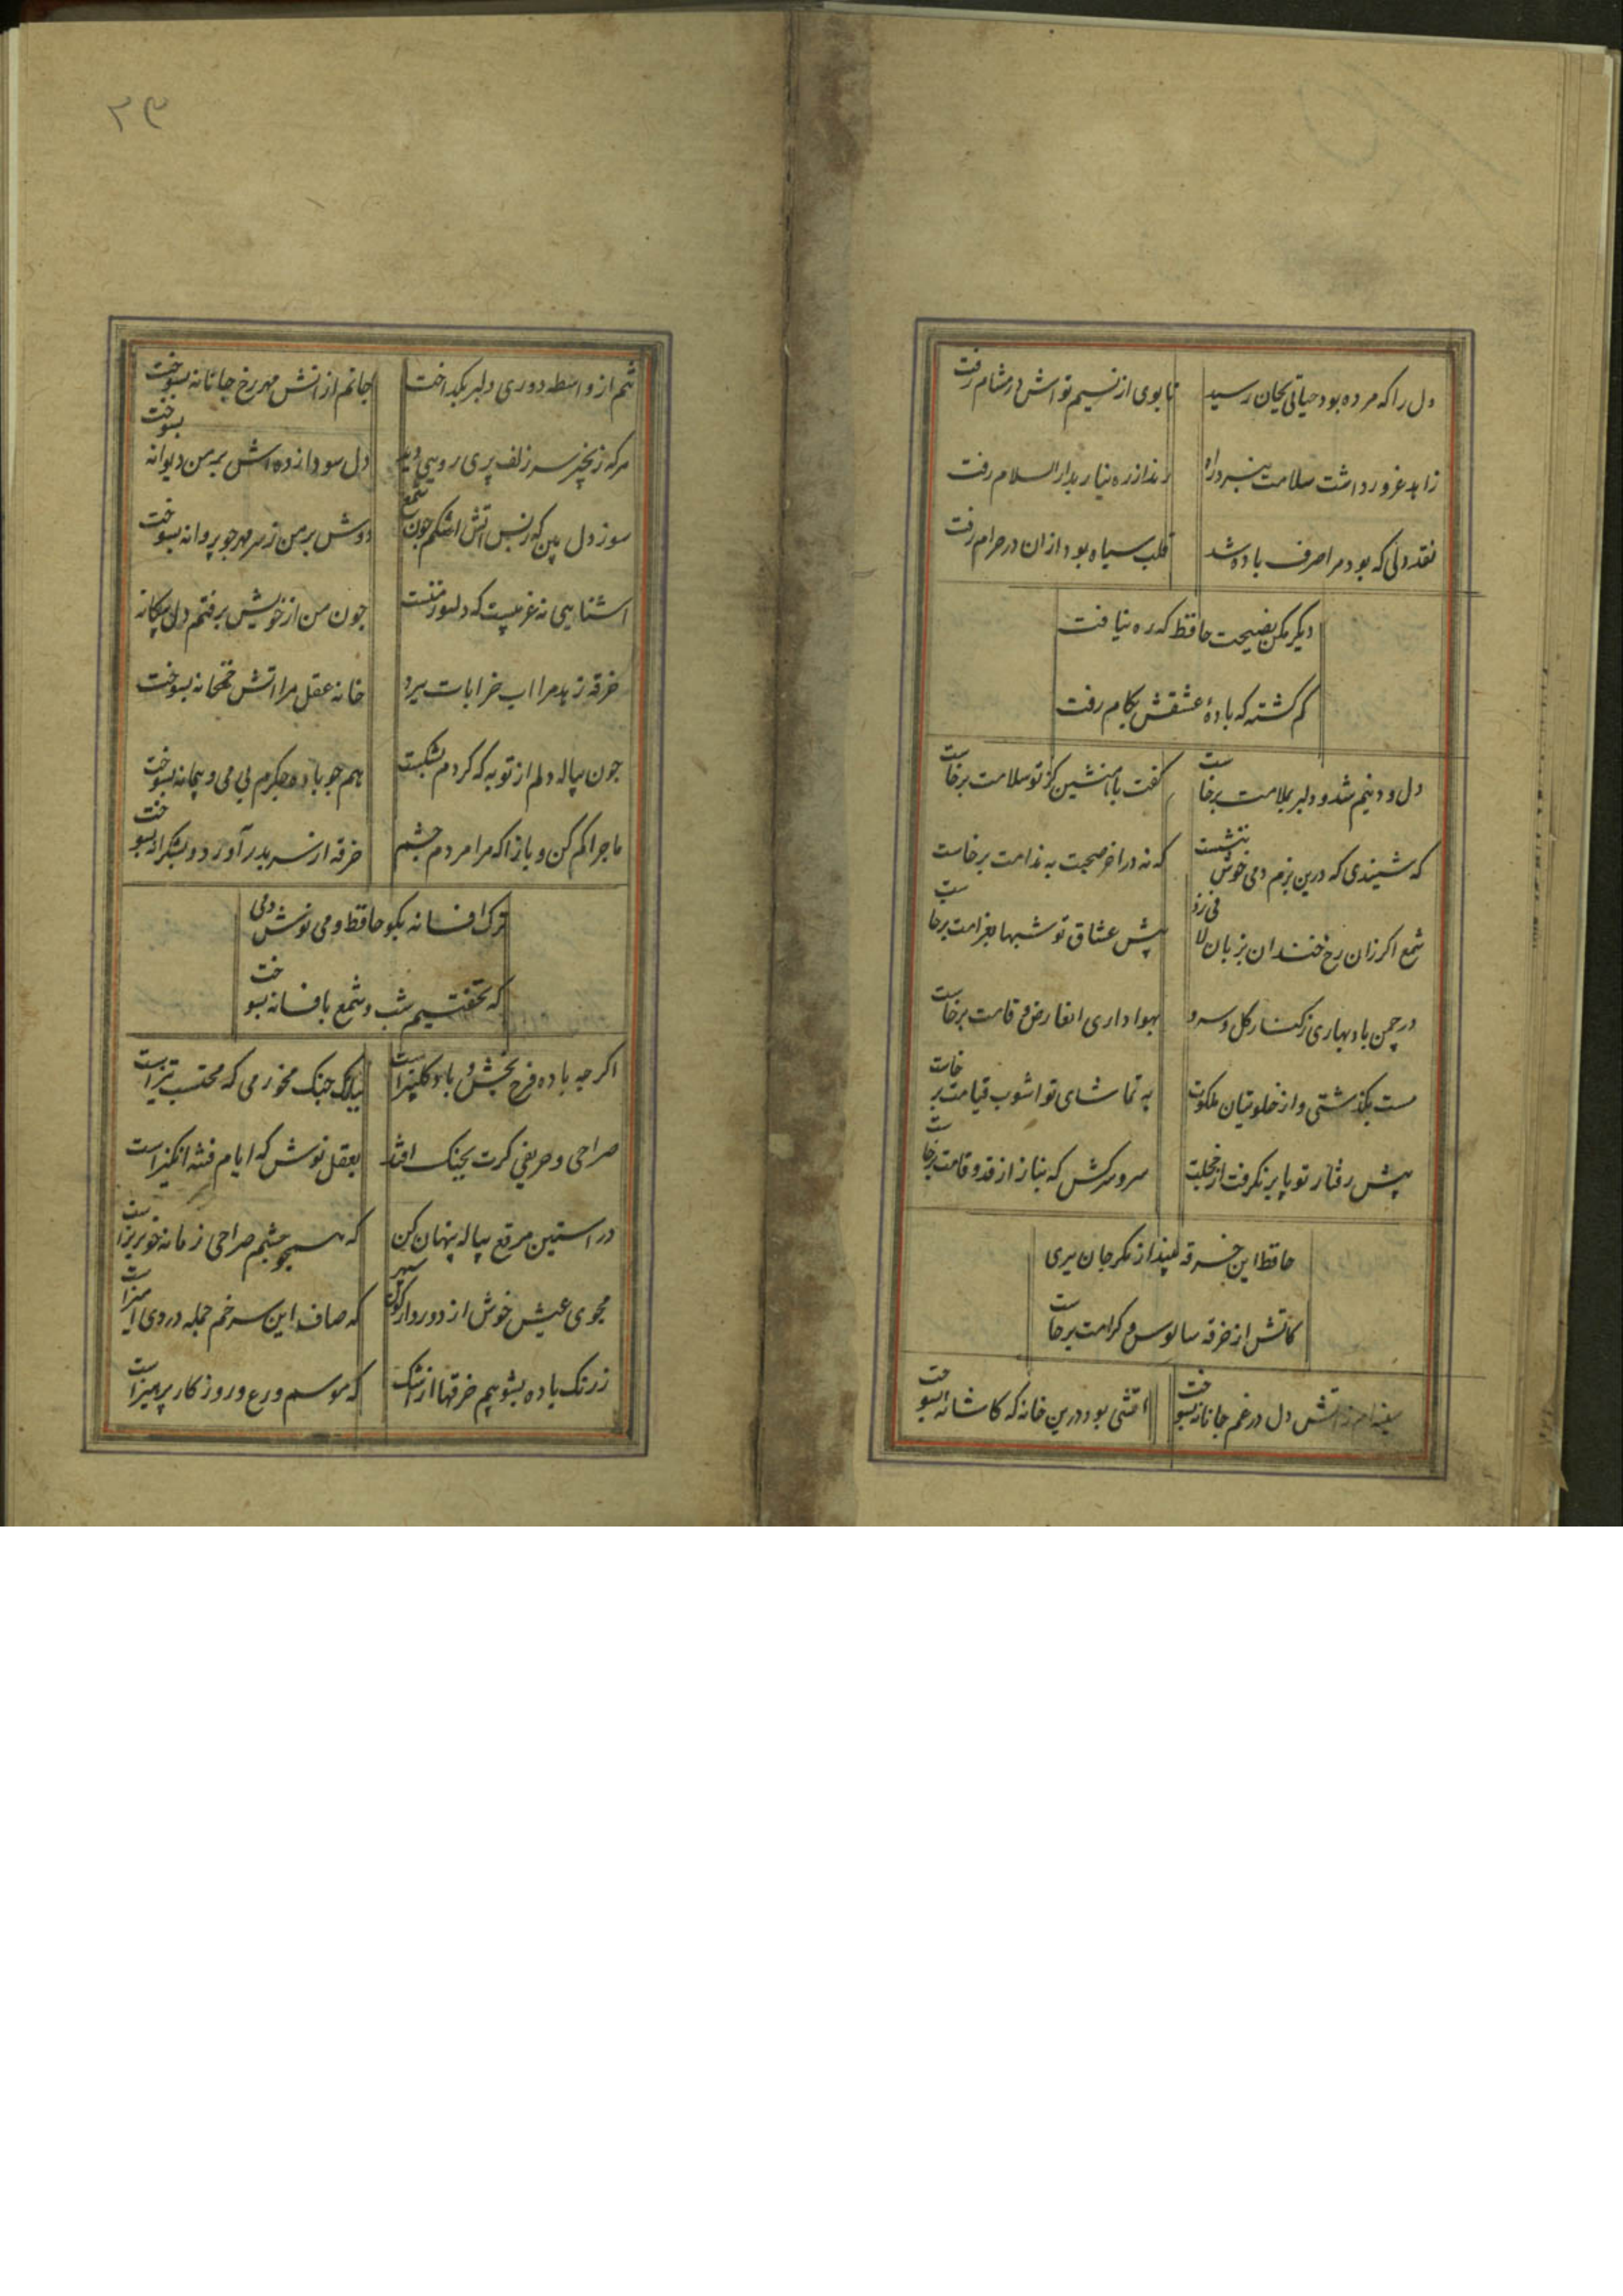 دل را که مرده بود حیاتی بجان رسید تا بوی از نسیم تواش در مشام رفت
زاهد غرور داشت سلامت نبرد راه رند از ره نیاز بدار السلام رفت
نقد دلی که بود مرا صرف باده شد قلب سیاه بود ازان در حرام رفت
دیکر مکن نصیحت حافظ که ره نیافت
کم کشته که بادهٔ عشقش بکام رفت
دل و دینم شد و دلبر بملامت برخاست کفت با ما منشین کز تو سلامت برخاست
که شنیدی که درین بزم دمی خوش بنشست که نه در اخر صحبت به ندامت برخاست
شمع اکر زان رخ خندان بزبان لافی زد پیش عشاق تو شبها بغرامت برخاست
در چمن باد بهاری ز کنار کل و سرو بهواداری ان عارض و قامت برخاست
مست بکذشتی و از خلوتیان ملکوت به تماشای تو اشوب قیامت برخاست
پیش رفتار تو پا بر نکرفت از خجلت سرو سرکش که بناز از قد و قامت برخاست
حافظ این خرقه بینداز مکر جان ببری
کاتش از خرقه سالوس و کرامت برخاست
سینه ام ز اتش دل در غم جانانه بسوخت اتشی بود درین خانه که کاشانه بسوخت
۲۳
تنم از واسطه دوری دلبر بکداخت جانم از اتش مهر رخ جانانه بسوخت
هرکه زنجیر سر زلف پری رویی دید دل سودازده اش بر من دیوانه بسوخت
سوز دل بین که ز بس اتش اشکم جون شمع دوش بر من ز سر مهر جو پروانه بسوخت
اشنایی نه غریبست که دلسوز منست جون من از خویش برفتم دل بیکانه
خرقه زهد مرا اب خرابات ببرد خانه عقل مرا اتش خمخانه بسوخت
جون پیاله دلم از توبه که کردم بشکست همجو باده جکرم بی می و پیمانه بسوخت
ماجرا کم کن و بازا که مرا مردم جشم خرقه از سر بدر آورد و بشکرانه بسوخت
ترک افسانه بکو حافظ و می نوش دمی
که نخفتیم شب و شمع بافسانه بسوخت
اکرجه باده فرح بخش و باد کلبیز است ببانک جنک مخور می که محتسب تیز است
صراحی و حریفی کرت بجنک افتد بعقل نوش که ایام فتنه انکیز است
در استین مرقع پیاله پنهان کن که همجو جشم صراحی زمانه خونریز است
مجوی عیش خوش از دور واژکون سپهر که صاف این سر خم جمله دردی امیز است
ز رنک باده بشوییم خرقها از اشک که موسم ورع و روزکار پرهیز است